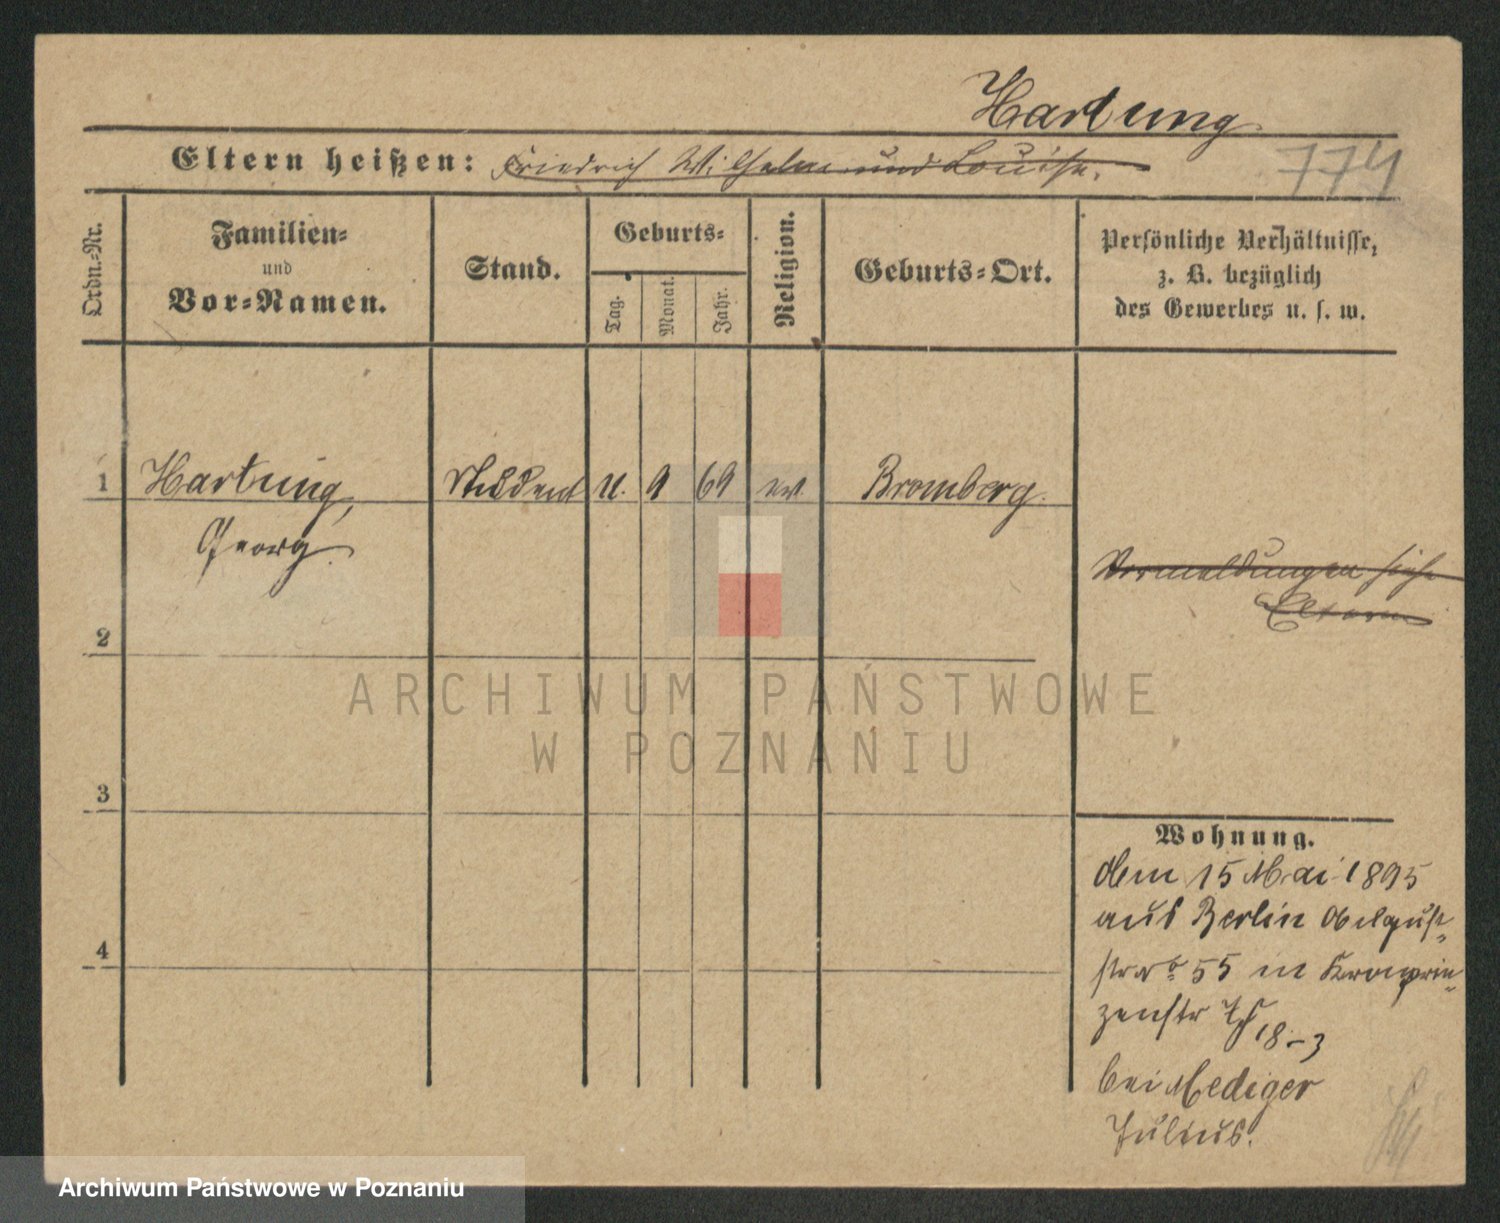 Hartung
Eltern heißen: Friedrich Wilhelm und Louise.
774
Ordn.-Nr.
Familien-
und
Vor-Namen.
Stand.
Geburts-
Tag.
Monat.
Jahr.
Religion.
Geburts-Ort.
Persönliche Verhältnisse,
z. B. bezüglich
des Gewerbes u. s. w.
1 Hartung, Student 11. 9 69 ev. Bromberg.
Georg.
Vermeldungen siehe
Eltern
2
ARCHIWUM PAŃSTWOWE
W POZNANIU
3
Wohnung.
den 15 Mai 1895
aus Berlin
4
str No 55 in Kronprin-
zenstr
18-3
bei Mediger
Julius.
Archiwum Państwowe w Poznaniu